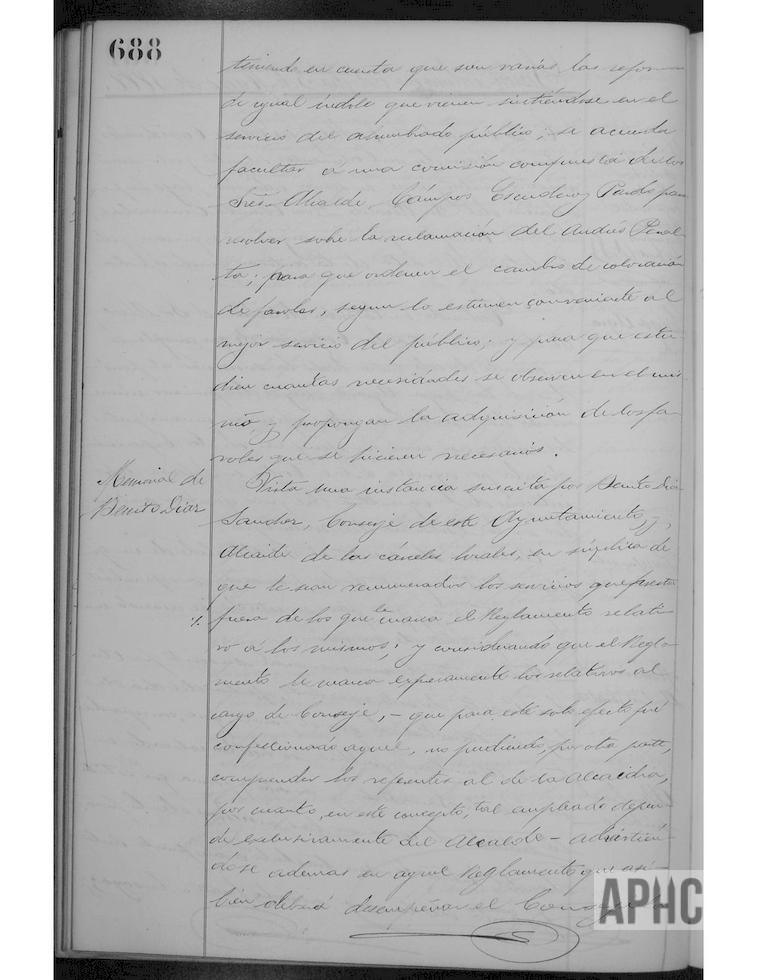 688
teniendo en cuenta que son varias las refor
de igual índole que vienen sintiéndose en el
servicio del alumbrado público; se acuerda
facultar á una comisión compuesta de los
Sres. Alcalde, Cámpos Escudero y Pardo para
resolver sobre la reclamación del Andrés Peral
ta; para que ordenen el cambio de colocación
de faroles, según lo estimen conveniente al
mejor servicio del público; y para que estu
dien cuantas necesidades se observen en el mis
mo, y propongan la adquisición de los fa
roles que se hicieren necesarios.
Memorial de
Benito Diaz
Vista una instancia suscrita por Benito Diaz
Sanchez, Conserje de este Ayuntamiento, y,
Alcaide de las cárceles locales, en súplica de
que le sean remunerados los servicios que presta
fuera de los que le marca el Reglamento relati
vo á los mismos; y considerando que el Regla
mento le marca expresamente los relativos al
cargo de Conserje, - que para este solo efecto fué
confeccionado aquel, no pudiendo, por otra parte,
comprender los referentes al de la Alcaidia,
por cuanto, en este concepto, tal empleado depen
de exclusivamente del Alcalde - advirtién
dose además en aquel Reglamento que asi
bien deberá desempeñar el
APHC